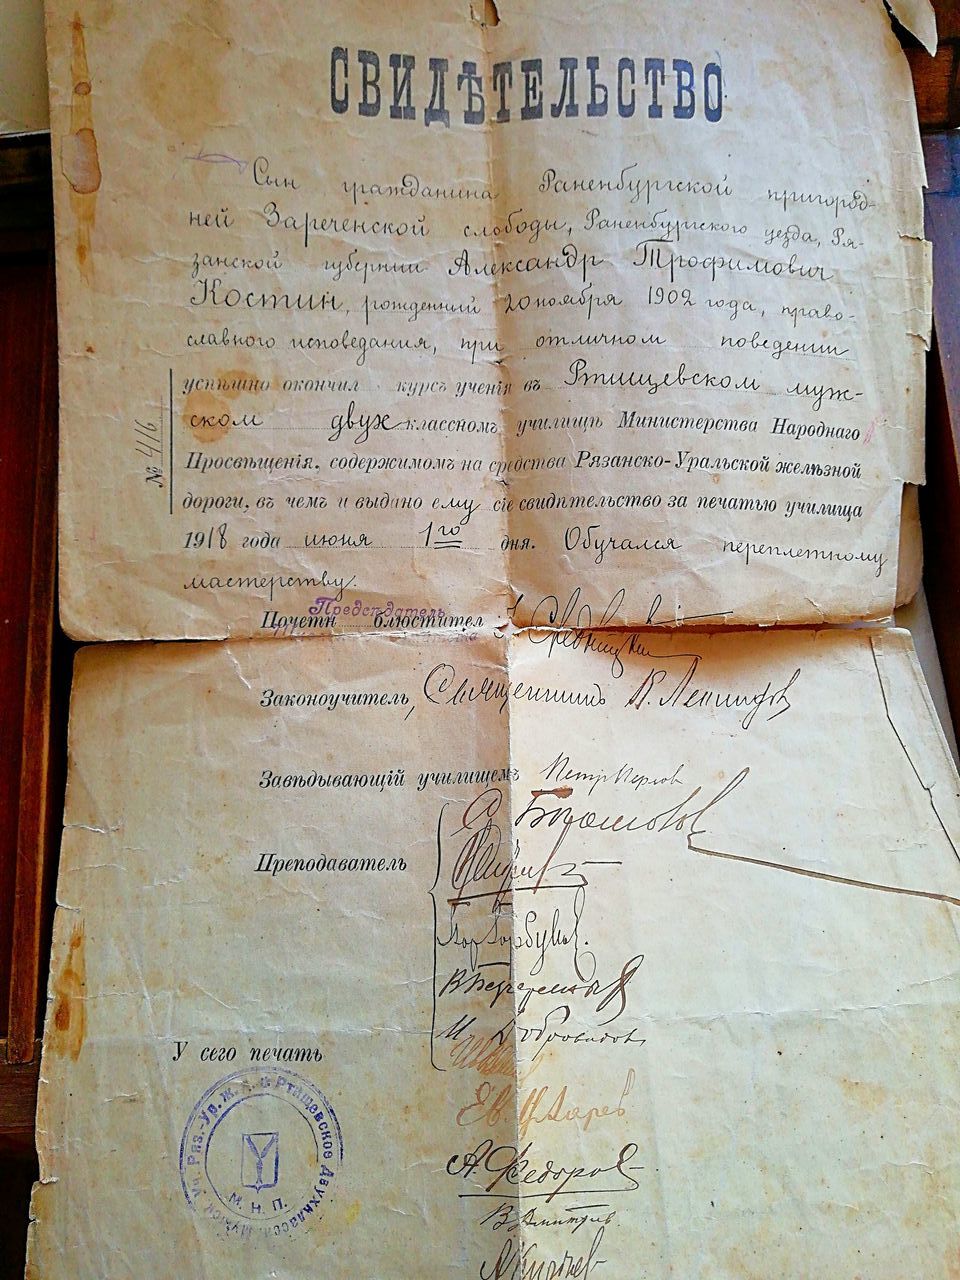 СВИДѢТЕЛЬСТВО
Сын гражданина Раненбургской пригород-
ней Зареченской слободы, Раненбургского уезда, Ря-
занской губернии Александр Трофимович
Костин, рожденный 20 ноября 1902 года, право-
славного исповедания, при отличном поведении
успѣшно окончил курсъ ученія въ Ртищевском муж-
ском двухклассномъ училищѣ Министерства Народнаго
Просвѣщенія, содержимомъ на средства Рязанско-Уральской желѣзной
дороги, въ чемъ и выдано ему сіе свидѣтельство за печатью училища
1918 года июня 1го дня. Обучался переплетному
мастерству.
№ 416
Председатель
Почетн блюстител
Законоучитель, Священникъ К.
Завѣдывающій училищемъ Петр
Преподаватель
А. Федоров
В. Дмитриев
У сего печать
Ряз.-Ур. Ж. Д. Ртищевское Двухклассн. Мужск. Уч.
М. Н. П.